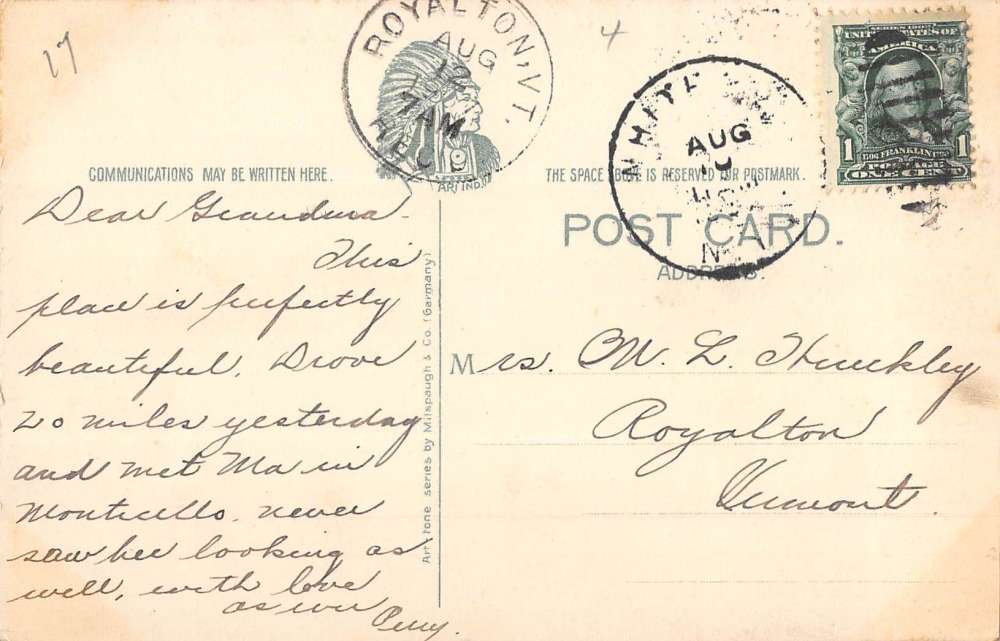 17
4
ROYALTON, VT.
AUG
7 AM
REC'D.
(ART IND.)
AUG
N.Y.
SERIES 1902
UNITED STATES OF
AMERICA
1 1
FRANKLIN
POSTAGE
ONE CENT
COMMUNICATIONS MAY BE WRITTEN HERE.
THE SPACE ABOVE IS RESERVED FOR POSTMARK.
POST CARD.
ADDRESS.
Dear Grandma -
This
place is perfectly
beautiful. Drove
20 miles yesterday
and met Ma in
Monticello. never
saw her looking as
well, with love
as ever
Perry.
Artvtone series by Milspaugh & Co. (Germany)
Mrs. M. L. Hunkley
Royalton
Vermont.